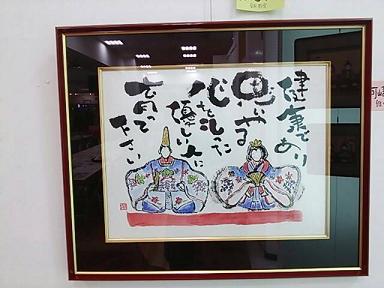 健康であり
思いやる
心を沿った
優しい人に
育って
下さい